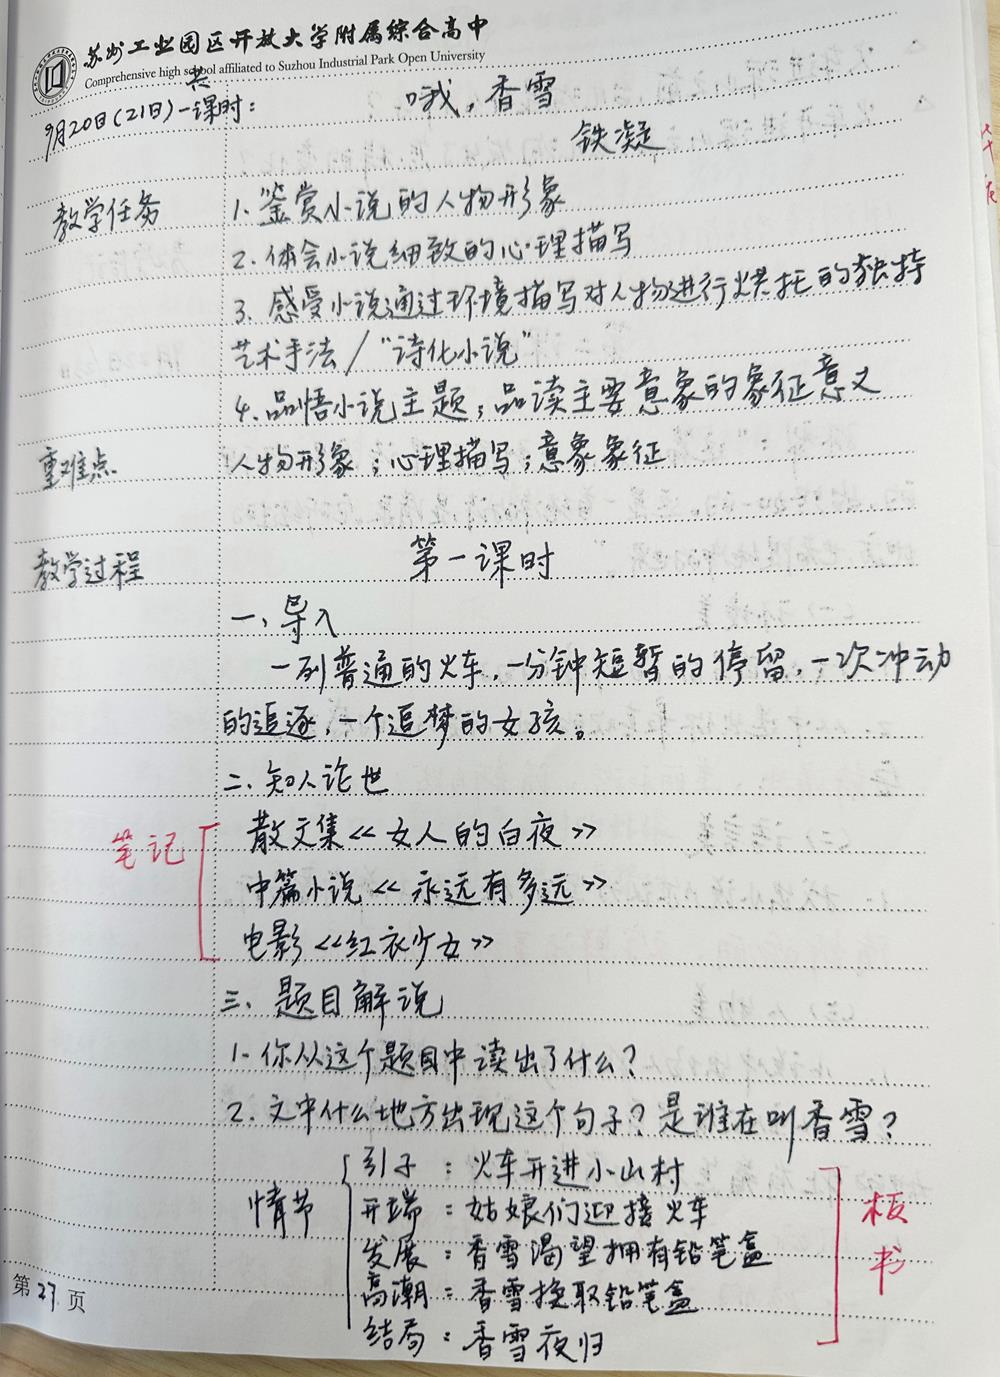 苏州工业园区开放大学附属综合高中
Comprehensive high school affiliated to Suzhou Industrial Park Open University
9月20日(21日)共一课时:
哦,香雪
铁凝
教学任务
1.鉴赏小说的人物形象
2.体会小说细致的心理描写
3.感受小说通过环境描写对人物进行烘托的独特
艺术手法/“诗化小说”
4.品悟小说主题,品读主要意象的象征意义
重难点
人物形象;心理描写;意象象征
教学过程
第一课时
一、导入
一列普通的火车,一分钟短暂的停留,一次冲动
的追逐,一个追梦的女孩。
二、知人论世
笔记
散文集《女人的白夜》
中篇小说《永远有多远》
电影《红衣少女》
三、题目解说
1.你从这个题目中读出了什么?
2.文中什么地方出现这个句子?是谁在叫香雪?
情节
引子:火车开进小山村
开端:姑娘们迎接火车
发展:香雪渴望拥有铅笔盒
高潮:香雪换取铅笔盒
结局:香雪夜归
板书
第27页